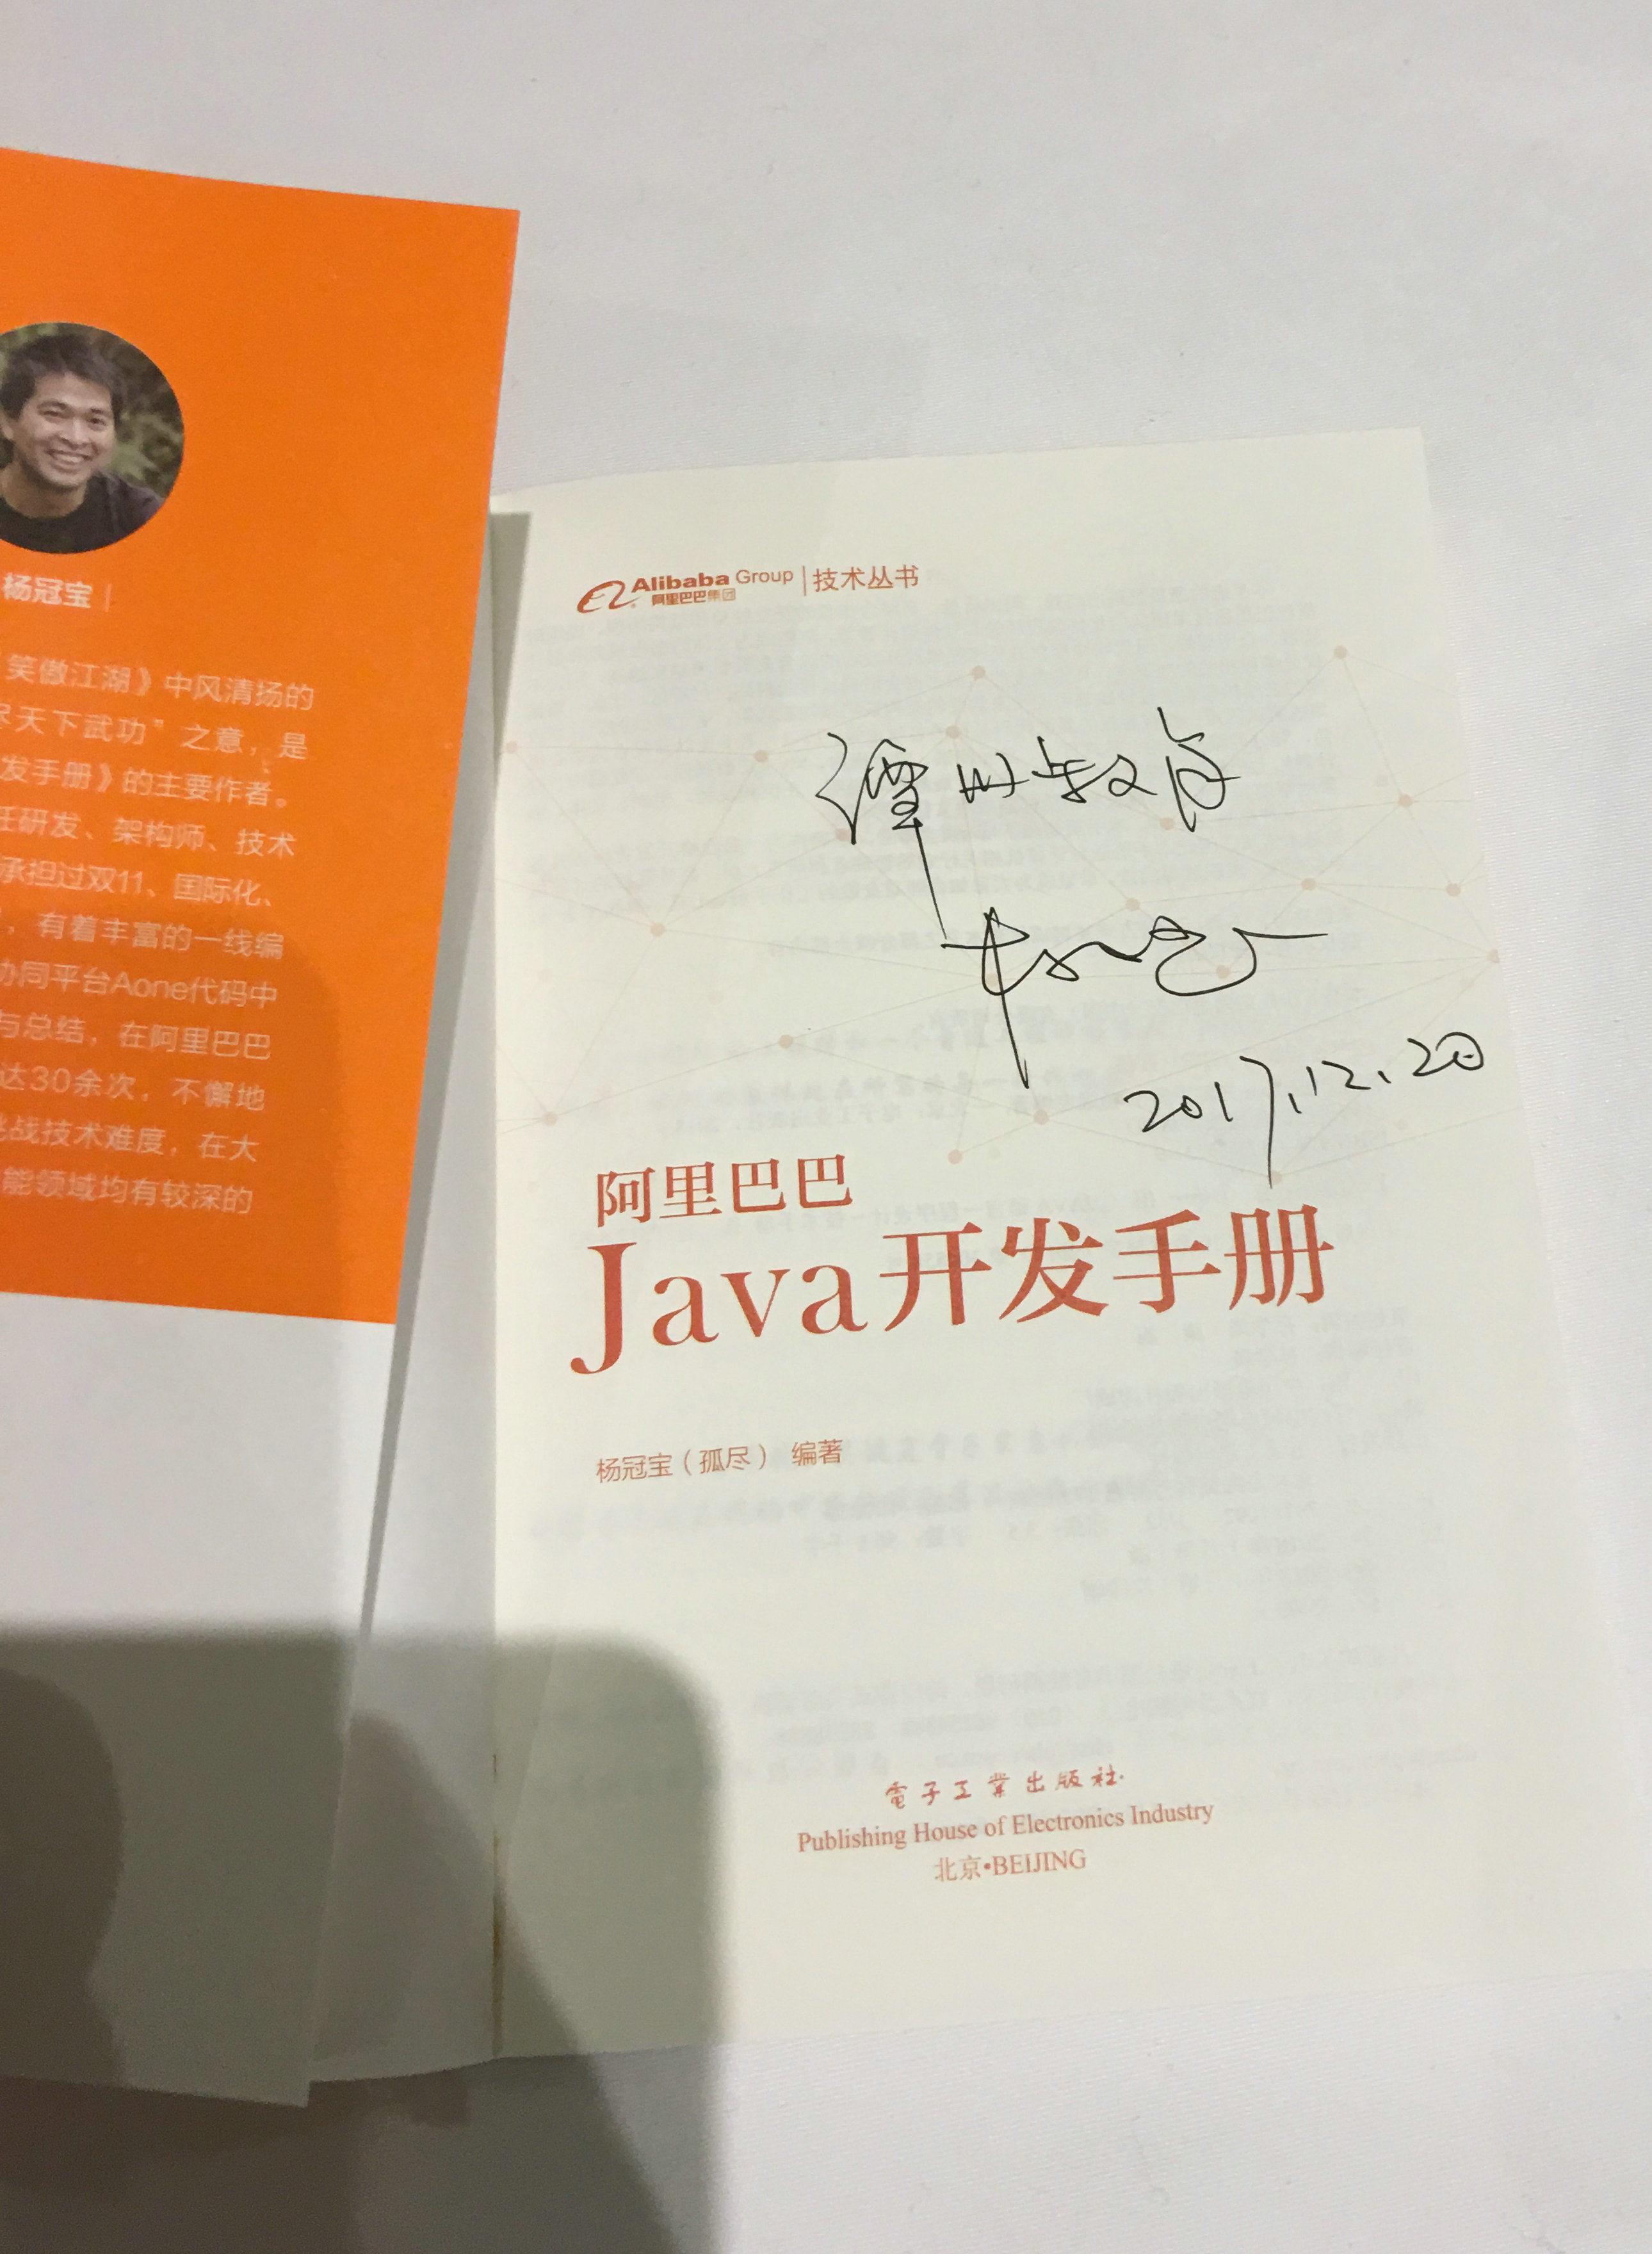 杨冠宝
笑傲江湖》中风清扬的
尽天下武功”之意，是
发手册》的主要作者。
任研发、架构师、技术
承担过双11、国际化、
，有着丰富的一线编
协同平台Aone代码中
与总结，在阿里巴巴
达30余次，不懈地
挑战技术难度，在大
能领域均有较深的
Alibaba Group | 技术丛书
阿里巴巴集团
潭州教育
2017.12.20
阿里巴巴
Java开发手册
杨冠宝（孤尽） 编著
電子工業出版社
Publishing House of Electronics Industry
北京•BEIJING